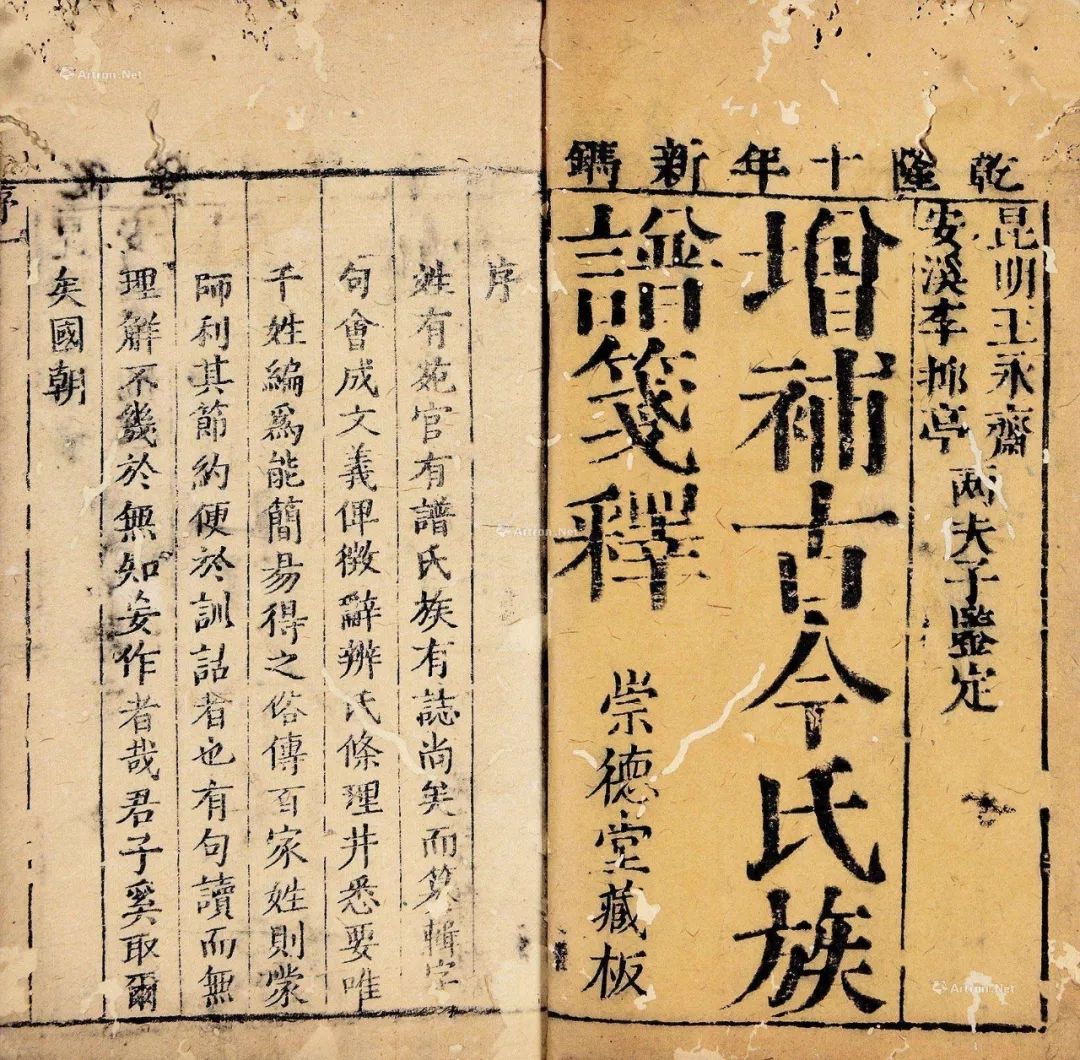 乾隆十年新鎸
昆明王永齋
安溪李抑亭
两夫子鍳定
增補古今氏族
譜箋釋
崇德堂藏板
序
姓有苑官有譜氏族有誌尚矣而纂輯字
句會成文義俾徵辭辨氏條理井悉要唯
千姓編爲能簡易得之俗傳百家姓則蒙
師利其節約便於訓詁者也有句讀而無
理解不幾於無知妄作者哉君子奚取爾
矣國朝
序一
Artron.Net
Artron.Net
Artron.Net